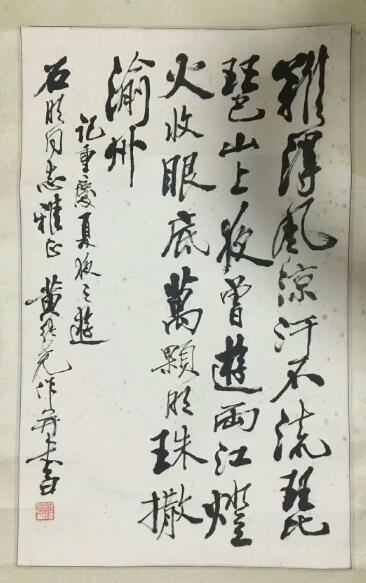 難得風涼汗不流琵
琶山上夜曾遊兩江燈
火收眼底萬顆明珠撒
渝州
记重慶夏夜之遊
石明同志雅正 黄 作并书